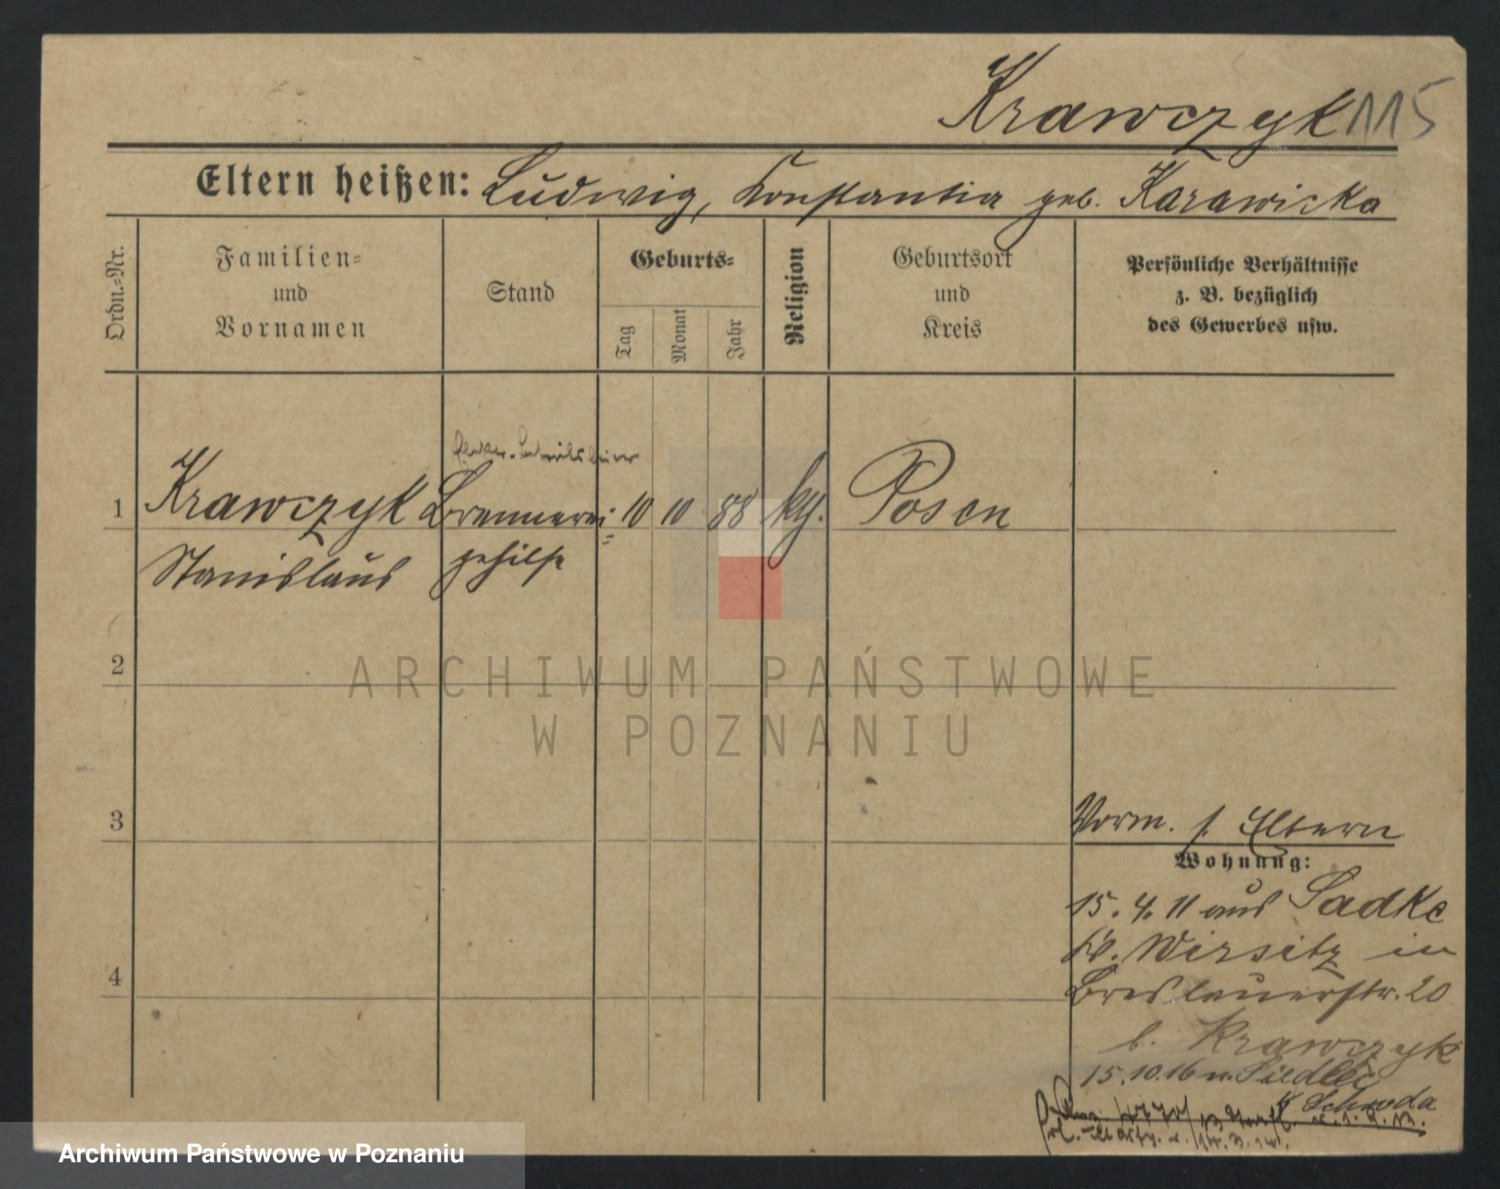 Krawczyk 115
Eltern heißen: Ludwig, Konstantia geb. Karawicka
Ordn.-Nr.
Familien-
und
Vornamen
Stand
Geburts-
Tag
Monat
Jahr
Religion
Geburtsort
und
Kreis
Persönliche Verhältnisse
z. B. bezüglich
des Gewerbes usw.
1 Krawczyk Brennerei- 10 10 88 kth. Posen
Stanislaus gehilfe
2
ARCHIWUM PAŃSTWOWE
W POZNANIU
3
Vorm. s. Eltern
Wohnung:
15. 4. 11 aus Sadke
Kr. Wirsitz in
4
Breslauerstr. 20
b. Krawczyk
15.10.16 n. Siedlec
Schroda
Archiwum Państwowe w Poznaniu